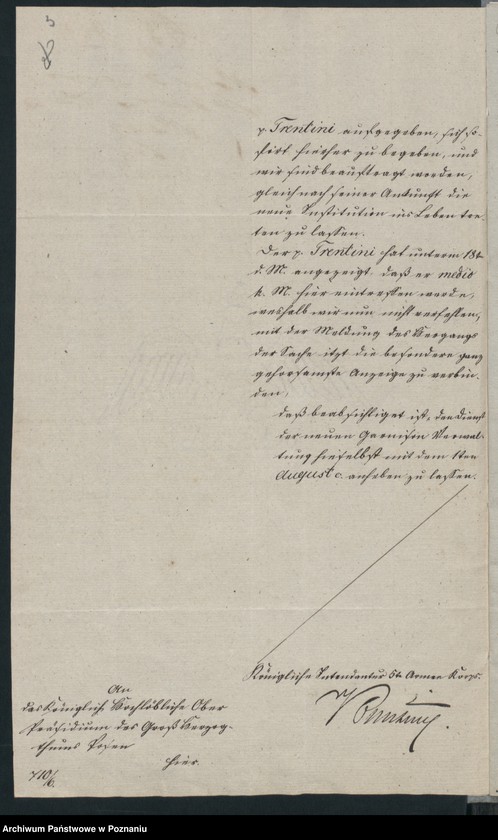 p. Trentini aufgegeben, sich so-
fort hierher zu begeben, und
wir sind beauftragt worden,
gleich nach seiner Ankunft die
neue Institution ins Leben tre-
ten zu lassen.
Der p. Trentini hat unterm 18t
d. M. angezeigt daß er medio
k. M. hier eintreffen werde,
weshalb wir nun nicht verfehlen,
mit der Meldung des Vorgangs
der Sache itzt die besondere ganz
gehorsamste Anzeige zu verbin-
den,
daß beabsichtiget ist, den Dienst
der neuen Garnison Verwal-
tung hieselbst mit dem 1ten
August c. anheben zu lassen.
Königliche Intendantur 5t Armee Korps.
An
das Königlich Hochlöbliche Ober
Präsidium des Groß Herzog-
thums Posen
hier.
710/6.
Archiwum Państwowe w Poznaniu